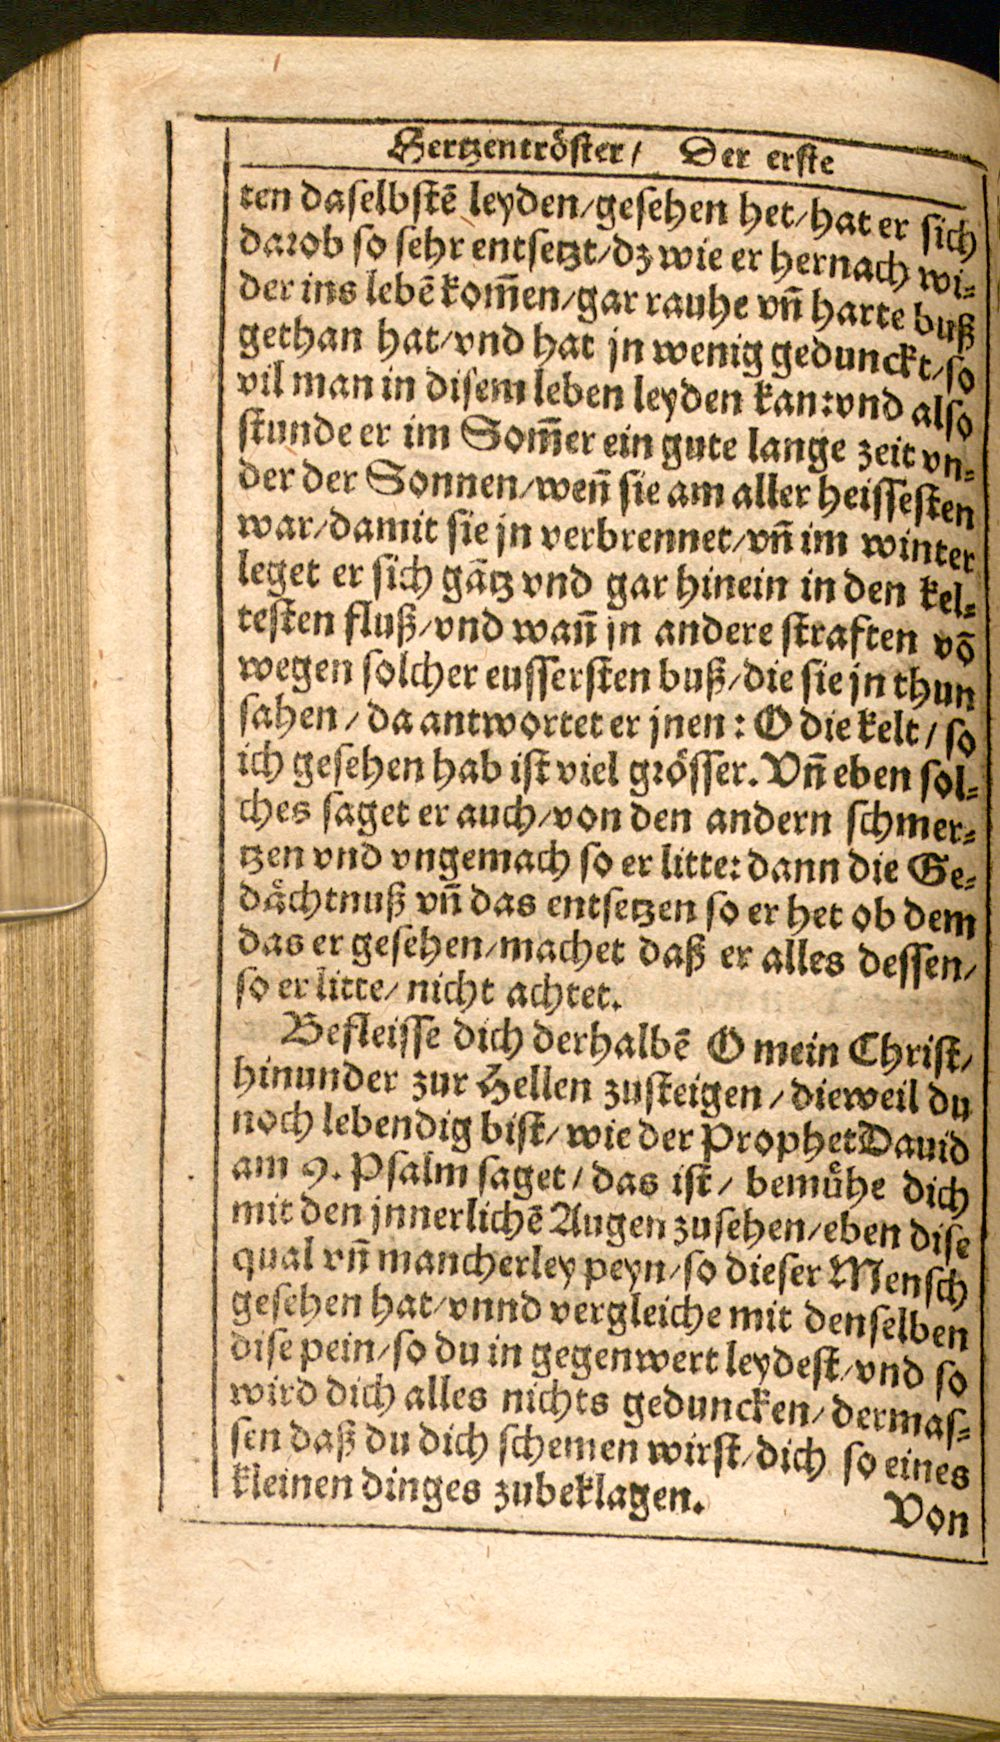 Hertzentröster/ Der erste
ten daselbstē leyden/gesehen het/hat er sich
darob so sehr entsetzt/dz wie er hernach wi⸗
der ins lebē kom̄en/gar rauhe vn̄ harte buß
gethan hat/vnd hat jn wenig gedunckt/so
vil man in disem leben leyden kan:vnd also
stunde er im Som̄er ein gute lange zeit vn⸗
der der Sonnen/wen̄ sie am aller heissesten
war/damit sie jn verbrennet/vn̄ im winter
leget er sich gātz vnd gar hinein in den kel⸗
testen fluß/vnd wan̄ jn andere straften vō
wegen solcher eussersten buß/die sie jn thun
sahen/da antwortet er jnen: O die kelt/so
ich gesehen hab ist viel grösser. Vn̄ eben sol⸗
ches saget er auch/von den andern schmer⸗
tzen vnd vngemach so er litte: dann die Ge⸗
dåchtnuß vn̄ das entsetzen so er het ob dem
das er gesehen/machet daß er alles dessen/
so er litte/ nicht achtet.
Befleisse dich derhalbē O mein Christ/
hinunder zur Hellen zusteigen/dieweil du
noch lebendig bist/wie der Prophet Dauid
am 9. Psalm saget/das ist/ bemůhe dich
mit den jnnerlichē Augen zusehen/eben dise
qual vn̄ mancherley peyn/so dieser Mensch
gesehen hat/vnnd vergleiche mit denselben
dise pein/so du in gegenwert leydest/vnd so
wird dich alles nichts geduncken/dermas⸗
sen daß du dich schemen wirst/dich so eines
kleinen dinges zubeklagen.
Von